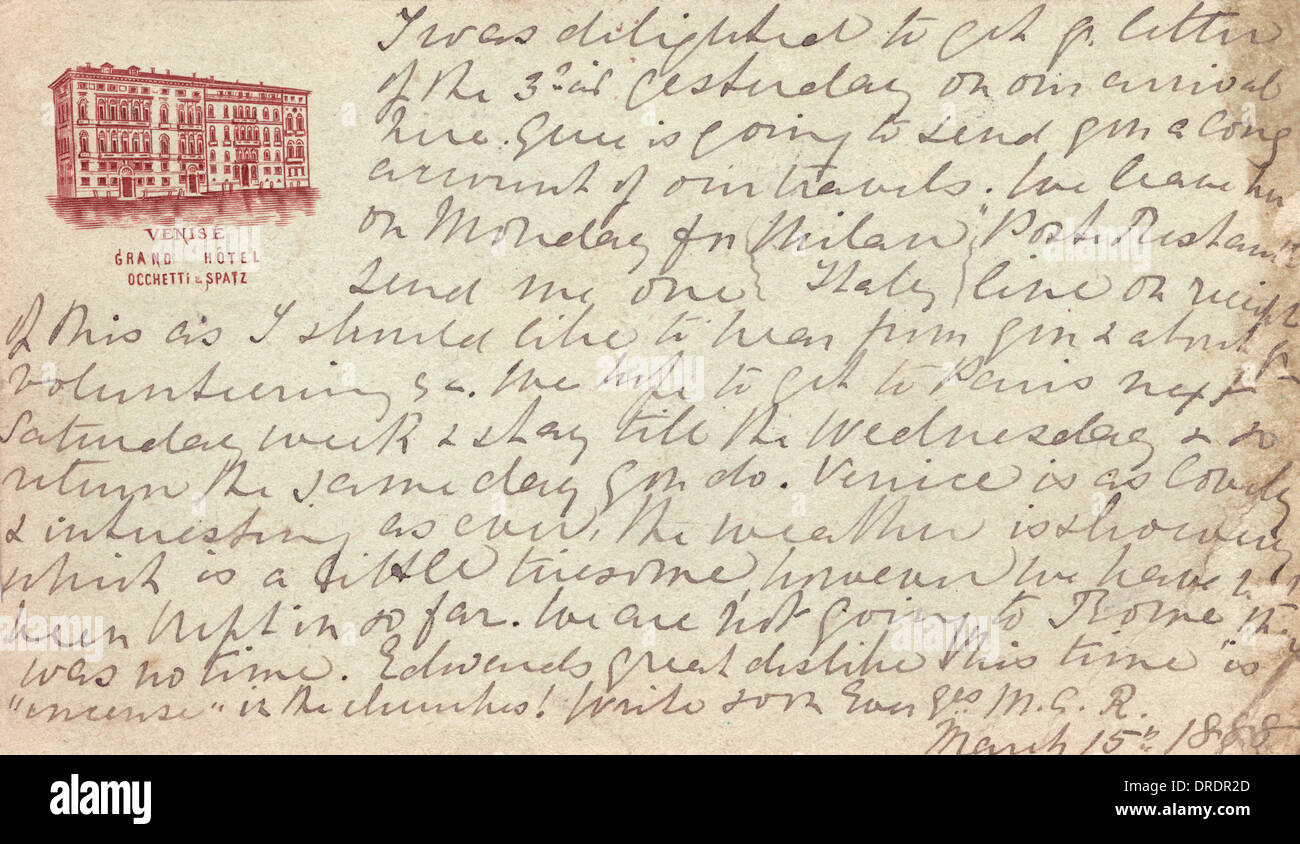 I was delighted to get yr. letter
of the 3rd yesterday on our arrival
here. is going to send you a long
account of our travels. We leave here
on Monday for "Milan" Poste Restante
send me one Italy line on receipt
of this as I should like to hear from you & about yr
volunteering &c. We hope to get to Paris next
Saturday week & stay till the Wednesday & so
return the same day you do. Venice is as lovely
& interesting as ever, the weather is showery
which is a little tiresome, however we have not
been kept in so far. We are not going to Rome, there
was no time. Edwards great dislike "this time" is
"incense" in the churches! Write soon Ever yrs. M. G. R.
March 15th 1888
VENISE
GRAND HÔTEL
OCCHETTI & SPATZ
alamy
alamy
alamy
Image ID: DRDR2D
www.alamy.com